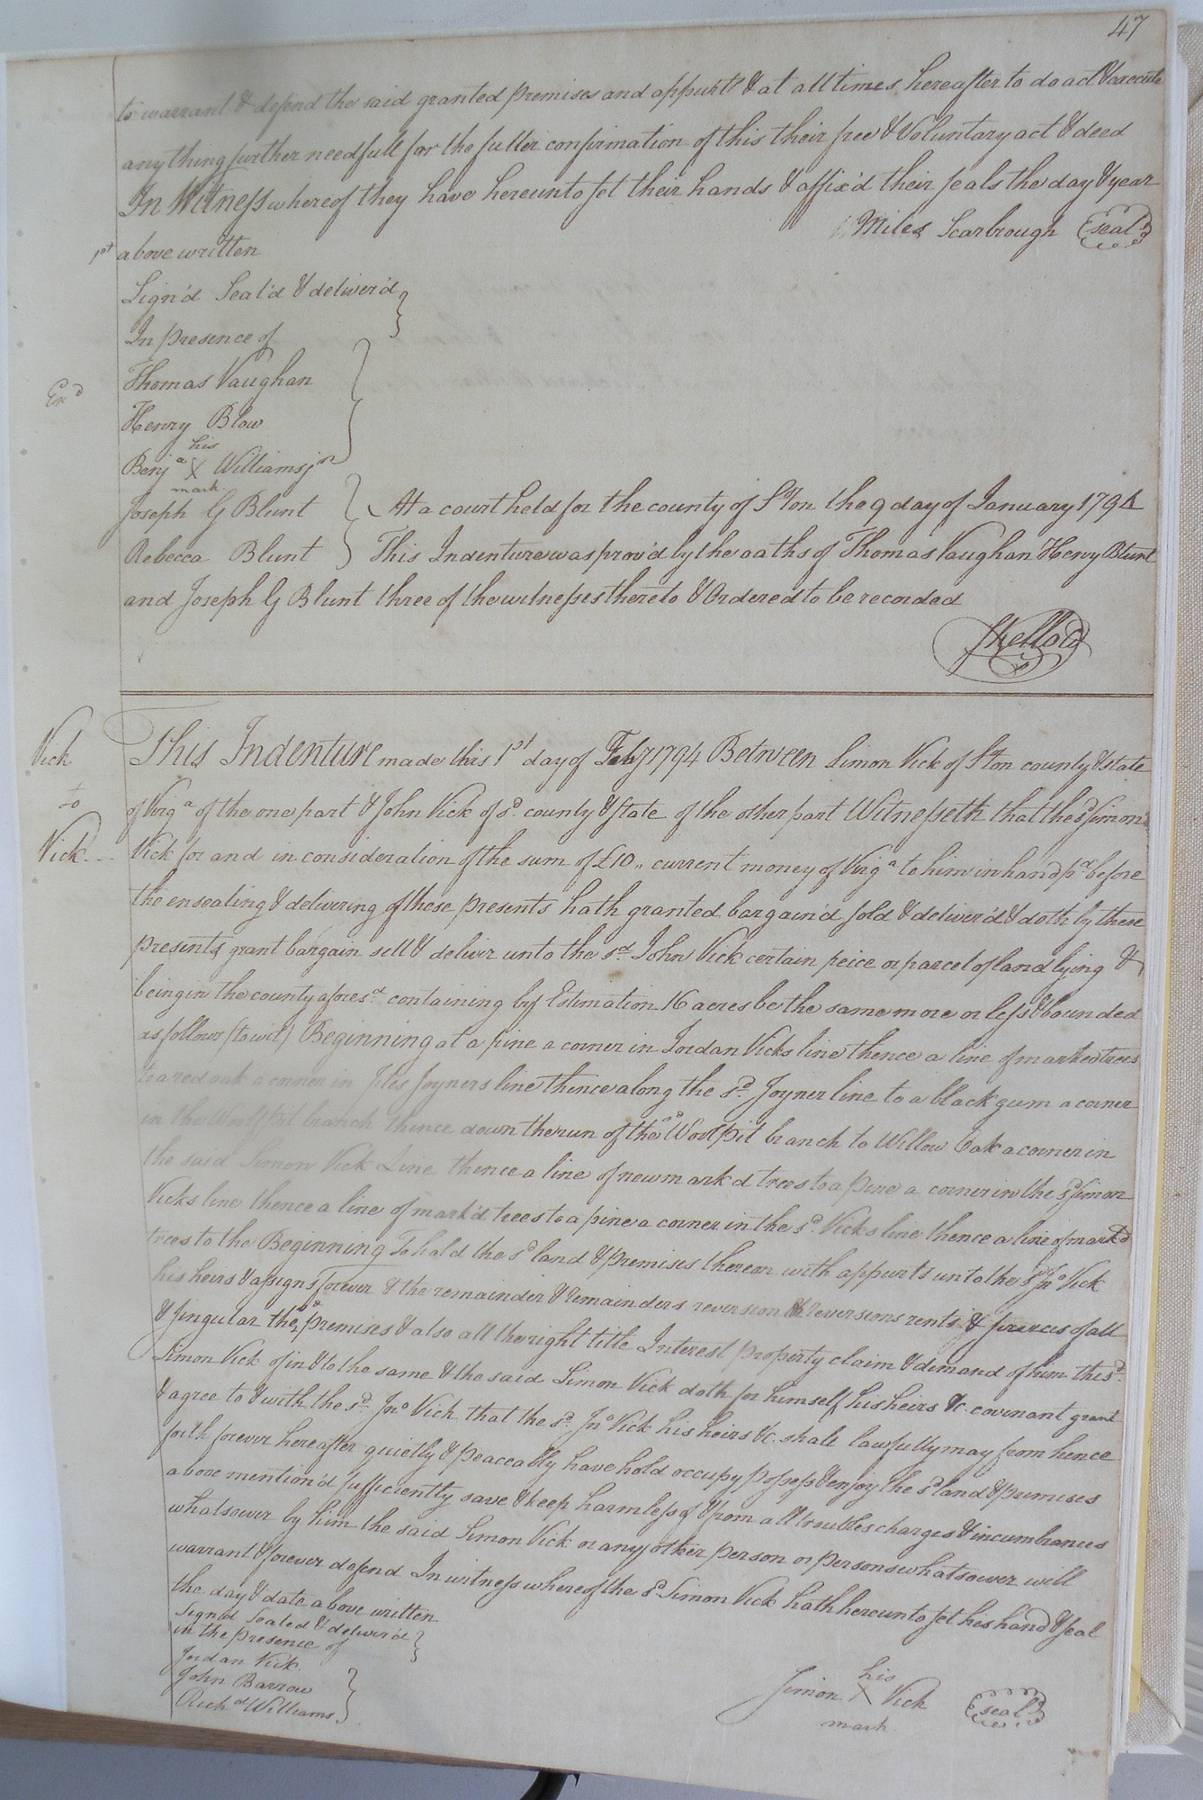 47
to warrant & defend the said granted premises and appurts & at all times hereafter to do act & execute
any thing further needfull for the fuller confirmation of this their free & Voluntary act & deed
In Witness whereof they have hereunto set their hands & affix'd their seals the day & year
1st above written
Miles Scarbrough (seal)
Sign'd Seal'd & deliver'd
In presence of
Thomas Vaughan
Exd
Henry Blow
his
Benja X Williams jr
mark
Joseph G Blunt
At a court held for the county of Sºton the 9 day of January 1794
Rebecca Blunt
This Indenture was prov'd by the oaths of Thomas Vaughan Henry Blunt
and Joseph G Blunt three of the witnesses thereto & Ordered to be recorded
This Indenture made this 1st day of Feby 1794 Between Simon Vick of Sºton county & state
Vick
to
Vick
of Virga of the one part & John Vick of sd county & state of the other part Witnesseth that the sd Simon
Vick for and in consideration of the sum of £10,, current money of Virga to him in hand pd before
the ensealing & delivering of these presents hath granted bargain'd sold & deliver'd & doth by these
presents grant bargain sell & deliver unto the sd John Vick certain peice or parcel of land lying &
being in the county aforesd containing by Estimation 16 acres be the same more or less & bounded
as follows (towit) Beginning at a pine a corner in Jordan Vicks line thence a line of marked trees
to a red oak a corner in Joyners line thence along the sd Joyner line to a black gum a corner
in the Woolf pit branch thence down the run of the sd Woolf pit branch to Willow Oak a corner in
the said Simon Vick Line thence a line of new mark'd trees to a pine a corner in the sd Simon
Vicks line thence a line of mark'd trees to a pine a corner in the sd Vicks line thence a line of mark'd
trees to the Beginning To hold the sd land & premises thereon with appurts unto the sd Jno Vick
his heirs & assigns forever & the remainder & remainders reversion & reversions rents & services of all
& singular the sd premises & also all the right title Interest property claim & demand of him the sd
Simon Vick of in & to the same & the said Simon Vick doth for himself his heirs &c covenant grant
& agree to & with the sd Jno Vick that the sd Jno Vick his heirs &c shall lawfully may from hence
forth forever hereafter quietly & peaceably have hold occupy possess & enjoy the sd land & premises
above mention'd sufficiently save & keep harmless of & from all troubles charges & incumbrances
whatsoever by him the said Simon Vick or any other person or persons whatsoever will
warrant & forever defend In witness whereof the sd Simon Vick hath hereunto set his hand & seal
the day & date above written
Sign'd Sealed & deliver'd
in the presence of
Jordan Vick
John Barrow
Richd Williams
his
Simon X Vick (seal)
mark